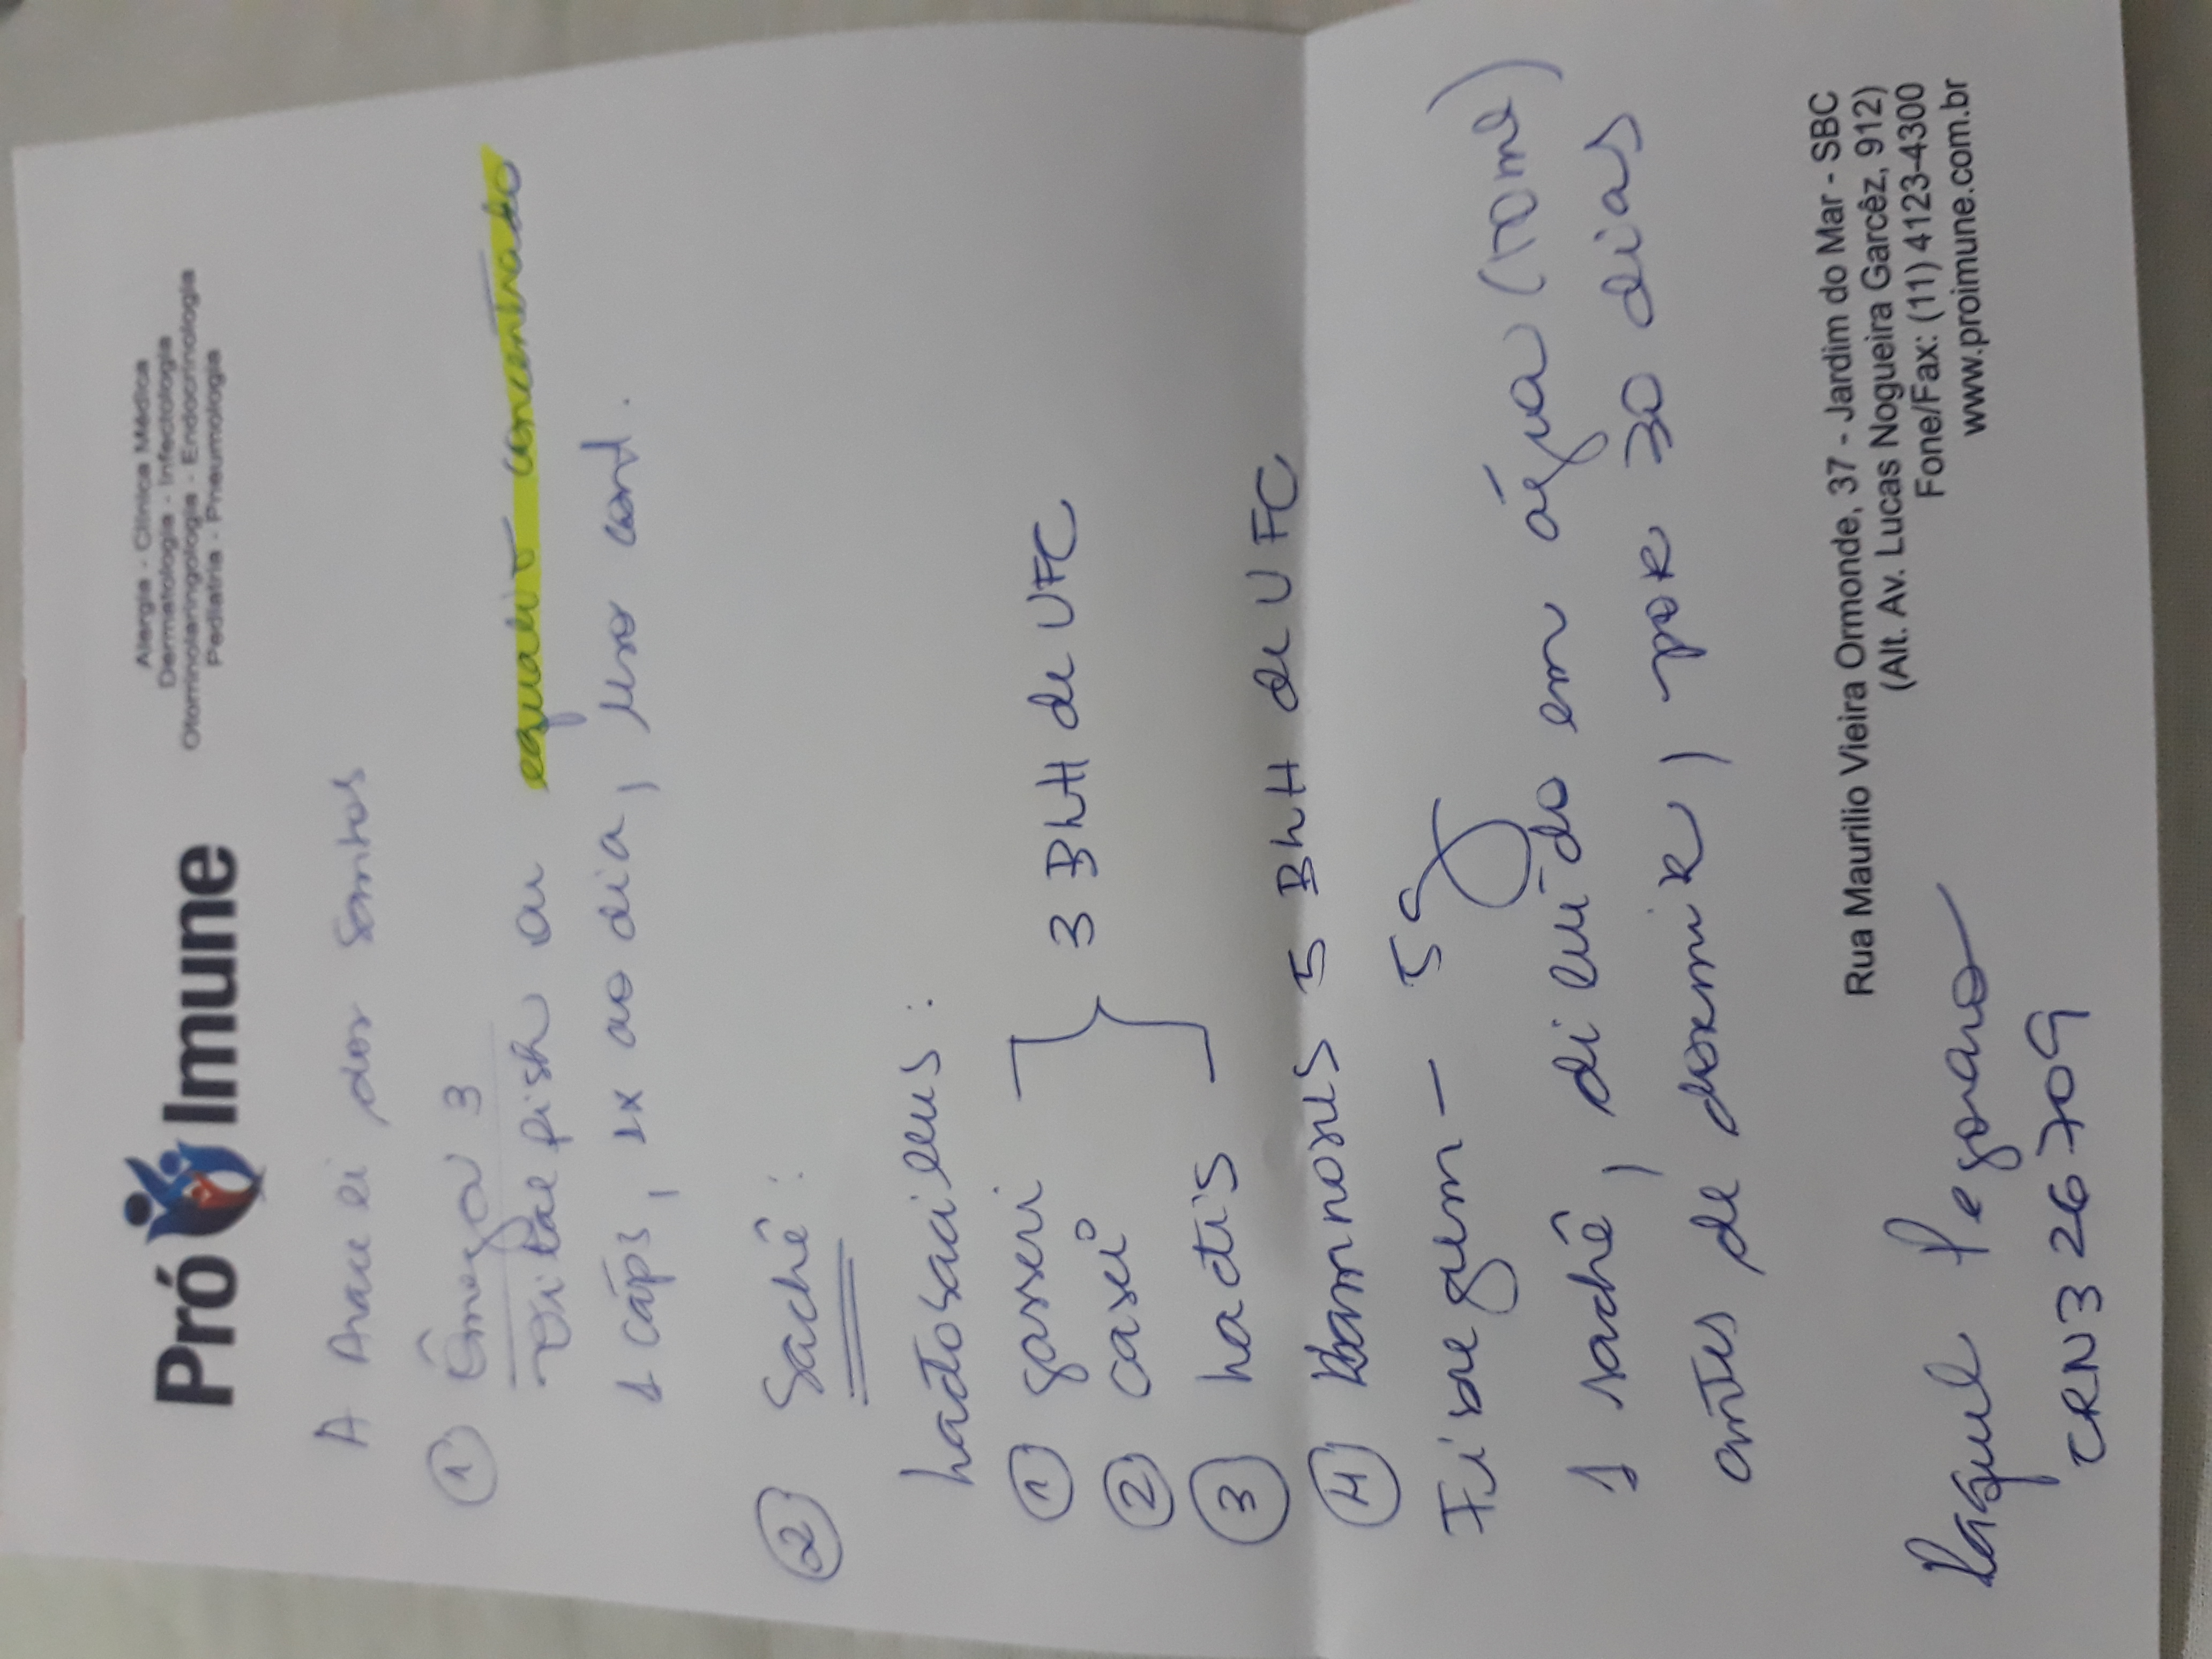 Pró Imune
Alergia - Clínica Médica
Dermatologia - Infectologia
Otorrinolaringologia - Endocrinologia
Pediatria - Pneumologia
A Araceli dos Santos
1 Ômega 3
Vitalfish ou concentrado
1 cáps, 1x ao dia, uso cont.
2 Sachê:
Lactobacillus:
1 gasseri
2 casei
3 BLH de UFC
3 Lactis
4 Rhamnosus 5 BLH de UFC
Fibregum - 5g
1 sachê, diluído em água
antes de dormir, por 30 dias
Rua Maurilio Vieira Ormonde, 37 - Jardim do Mar - SBC
(Alt. Av. Lucas Nogueira Garcêz, 912)
Fone/Fax: (11) 4123-4300
www.proimune.com.br
Raquel Pegoraro
CRN3 26709